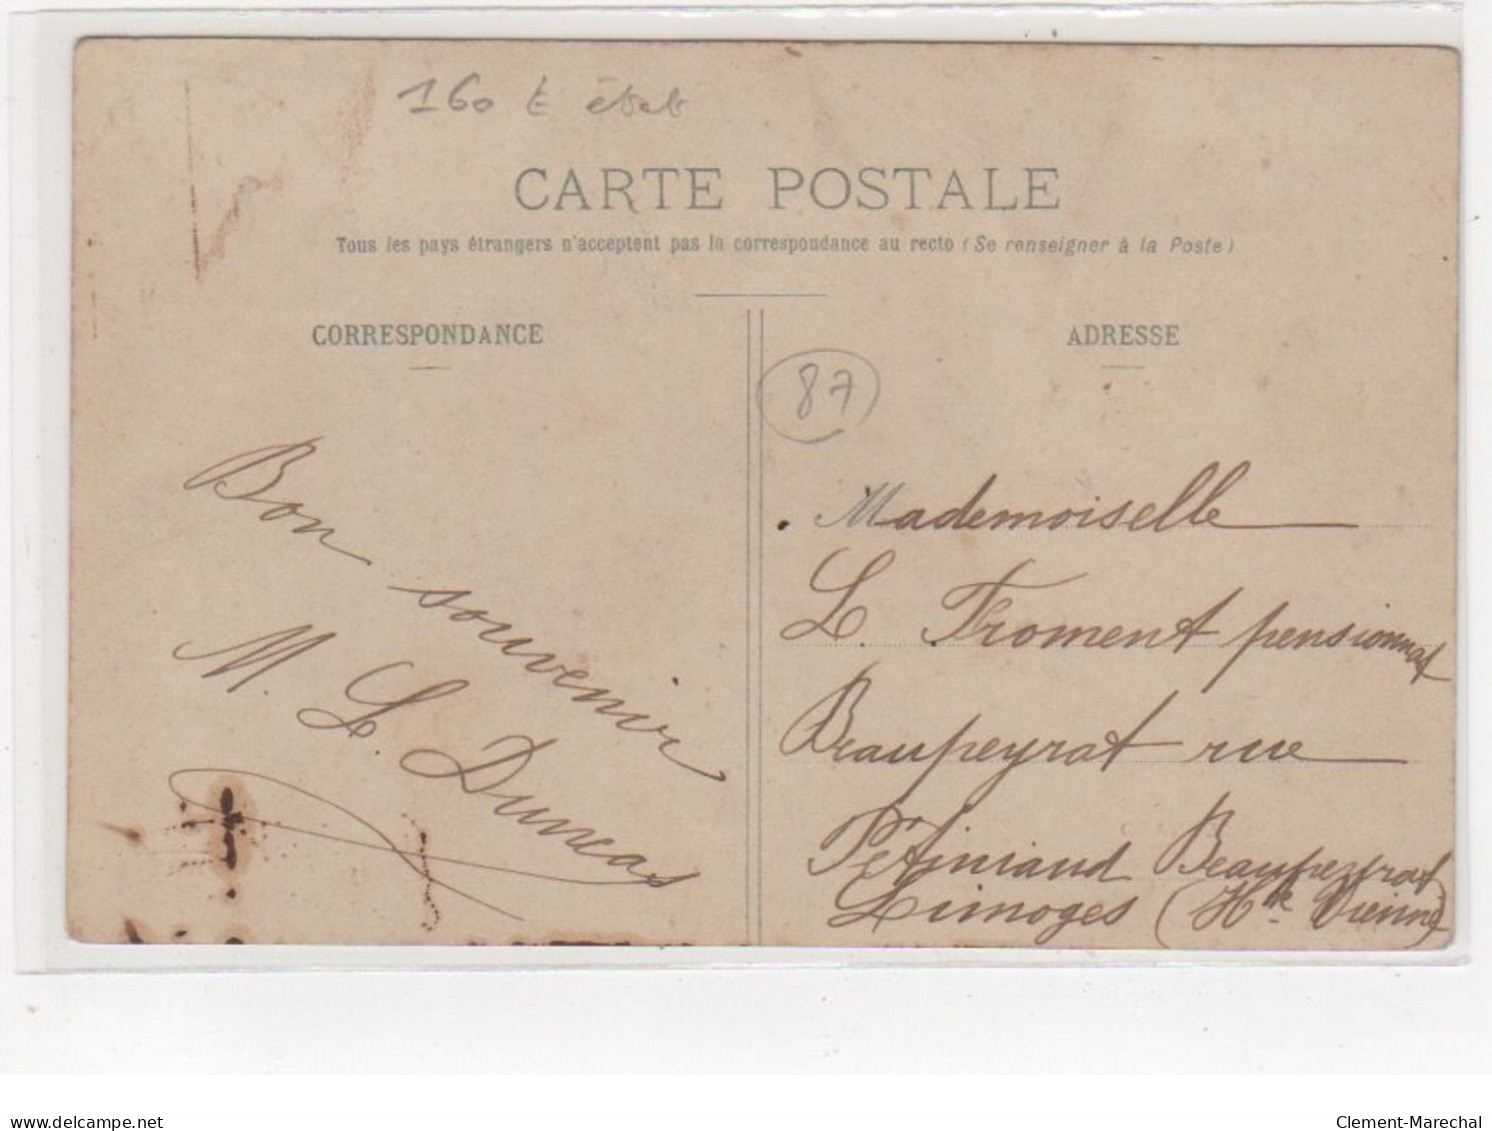 160 € état
CARTE POSTALE
Tous les pays étrangers n'acceptent pas la correspondance au recto (Se renseigner à la Poste)
CORRESPONDANCE
Bon souvenir
M. L. Duncas
ADRESSE
87
Mademoiselle
L. Froment pensionnat
Beaupeyrat rue
Pétiniaud Beaupeyrat
Limoges (Hte Vienne)
delcampe.net
Clement-Marechal